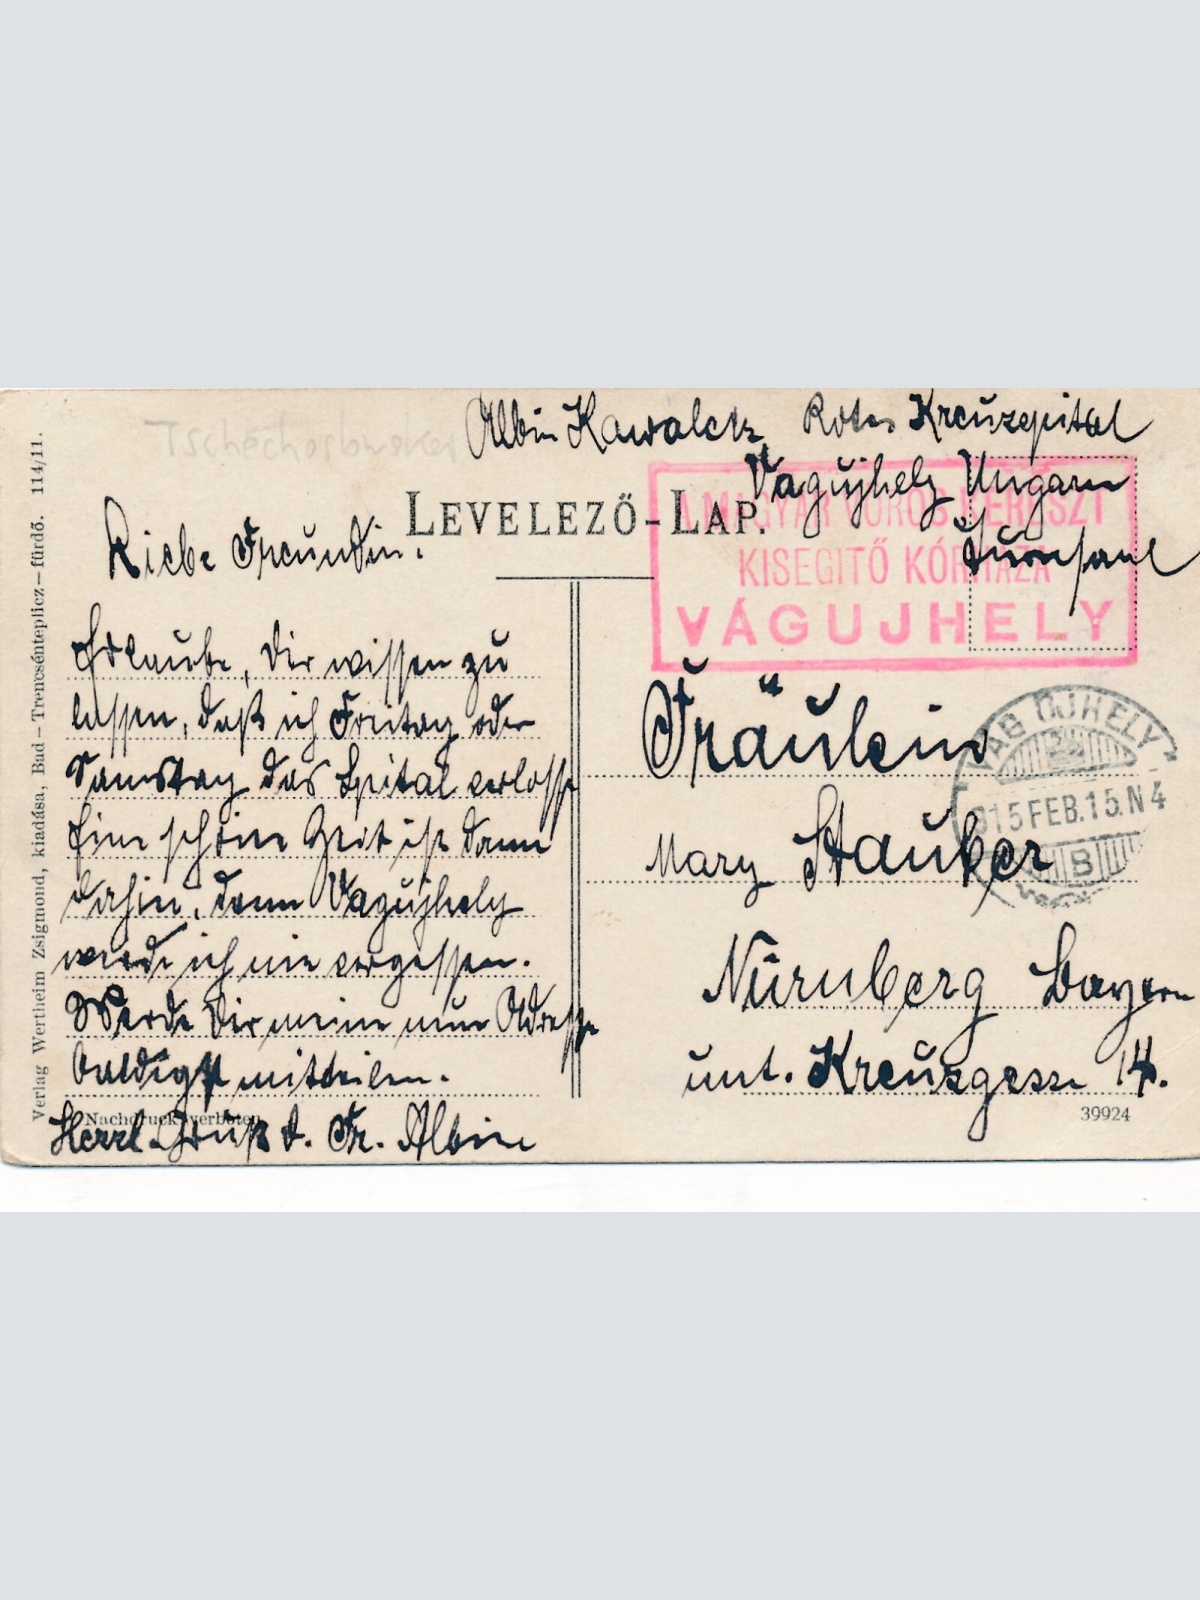 Tschechoslowakei
Albin Kawalek Rotes Kreuzspital
Vágujhely Ungarn
LEVELEZŐ-LAP.
MAGYAR VÖRÖS KERESZT
KISEGITŐ KÓRHÁZA
VÁGUJHELY
Liebe Freundin.
Erlaube, Dir wissen zu
lassen, daß ich Freitag oder
Samstag das Spital verlasse
Eine schöne Zeit ist dann
dahin, denn Vagujhely
werde ich nie vergessen.
Werde Dir meine neue Adresse
baldigst mitteilen.
Herzl. Gruß d. Fr. Albin
Nachdruck verboten
Fräulein
Mary Stauber
Nürnberg Bayern
unt. Kreuzgasse 14.
VÁG ÚJHELY
915 FEB.15.N4
B
39924
Verlag Wertheim Zsigmond, kiadása, Bad-Trencsénteplicz-fürdő. 114/11.